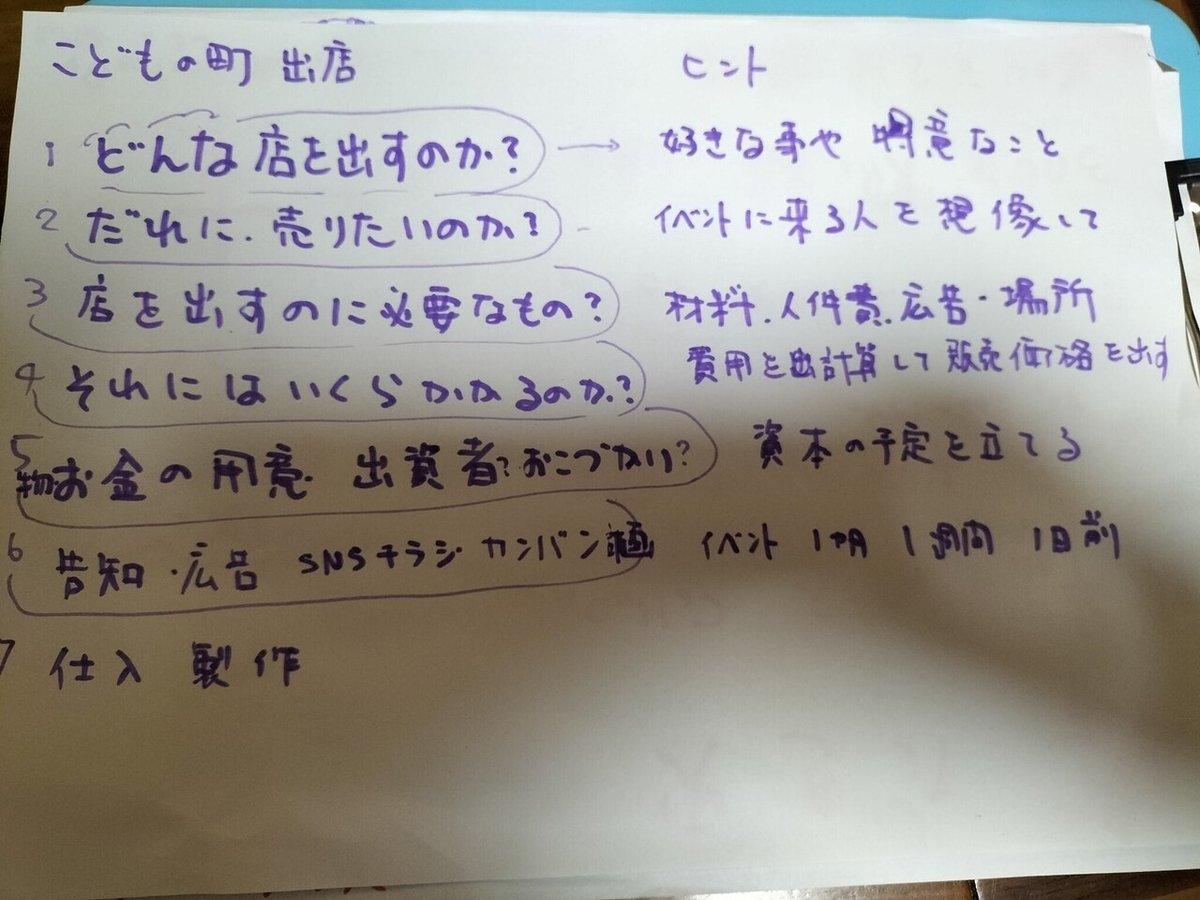 こどもの町 出店 ヒント
1 どんな店を出すのか? → 好きな事や 得意なこと
2 だれに、売りたいのか? イベントに来る人を想像して
3 店を出すのに必要なもの? 材料、人件費、広告・場所
4 それにはいくらかかるのか? 費用を出計算して販売価格を出す
5 物お金の用意 出資者?おこづかい? 資本の予定を立てる
6 告知・広告 SNSチラシ カンバン イベント 1ヶ月 1週間 1日前
7 仕入 製作